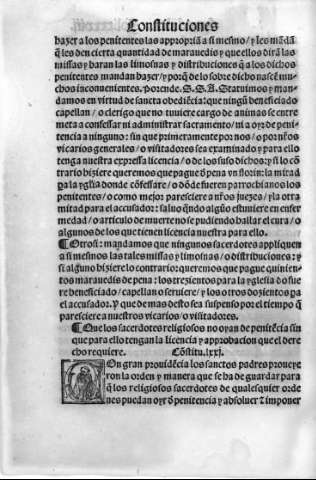 Constituciones
hazer a los penitentes las appropriã a si mesmo / y les mãdã
q̃ les den cierta quantidad de marauedis y que ellos dirã las
missas y haran las limosnas y distribuciones q̃ a los dichos
penitentes mandan hazer / y porq̃ de lo sobre dicho nascẽ mu-
chos inconuenientes. Porende. S. S. A. Statuimos y man-
damos en virtud de sancta obediẽcia: que ningũ beneficiado
capellan / o clerigo que no tuuiere cargo de animas se entre
meta a confessar ni administrar sacramento / ni a oyr de peni-
tencia a ninguno: sin que primeramente por nos / o por nr̃os
vicarios generales / o visitadores sea examinado y para ello
tenga nuestra expressa licencia / o de los suso dichos: y si lo cõ-
trario hiziere queremos que pague d̃ pena vn florin: la mitad
pa la yg̃lia donde cõfessare / o dõde fuerẽ parrochianos los
penitentes / o como mejor paresciere a nr̃os juezes / y la otra
mitad para el accusador: saluo q̃ndo alguno estuuiere en enfer
medad / o articulo de muerte no se pudiendo hallar el cura / o
algunos de los que tienen licencia nuestra para ello.
¶ Otrosi: mandamos que ningunos sacerdotes appliquen
a si mesmos las tales missas y limosnas / o distribuciones: y
si algũo hiziere lo contrario: queremos que pague quinien-
tos marauedis de pena: los trezientos para la yglesia do fue
re beneficiado / capellan o seruiere / y los otros dozientos pa
el accusador. Y que de mas desto sea suspenso por el tiempo q̃
paresciere a nuestros vicarios / o visitadores.
¶ Que los sacerdotes religiosos no oyan de penitẽcia sin
que para ello tengan la licencia y approbacion que el dere-
cho requiere. Cõstitu. lxxj.
COn gran prouidẽcia los sanctos padres proueye
ron la orden y manera que se ha de guardar para
q̃ los religiosos sacerdotes de qualesquier orde
nes puedan oyr d̃ penitencia y absoluer ⁊ imponer